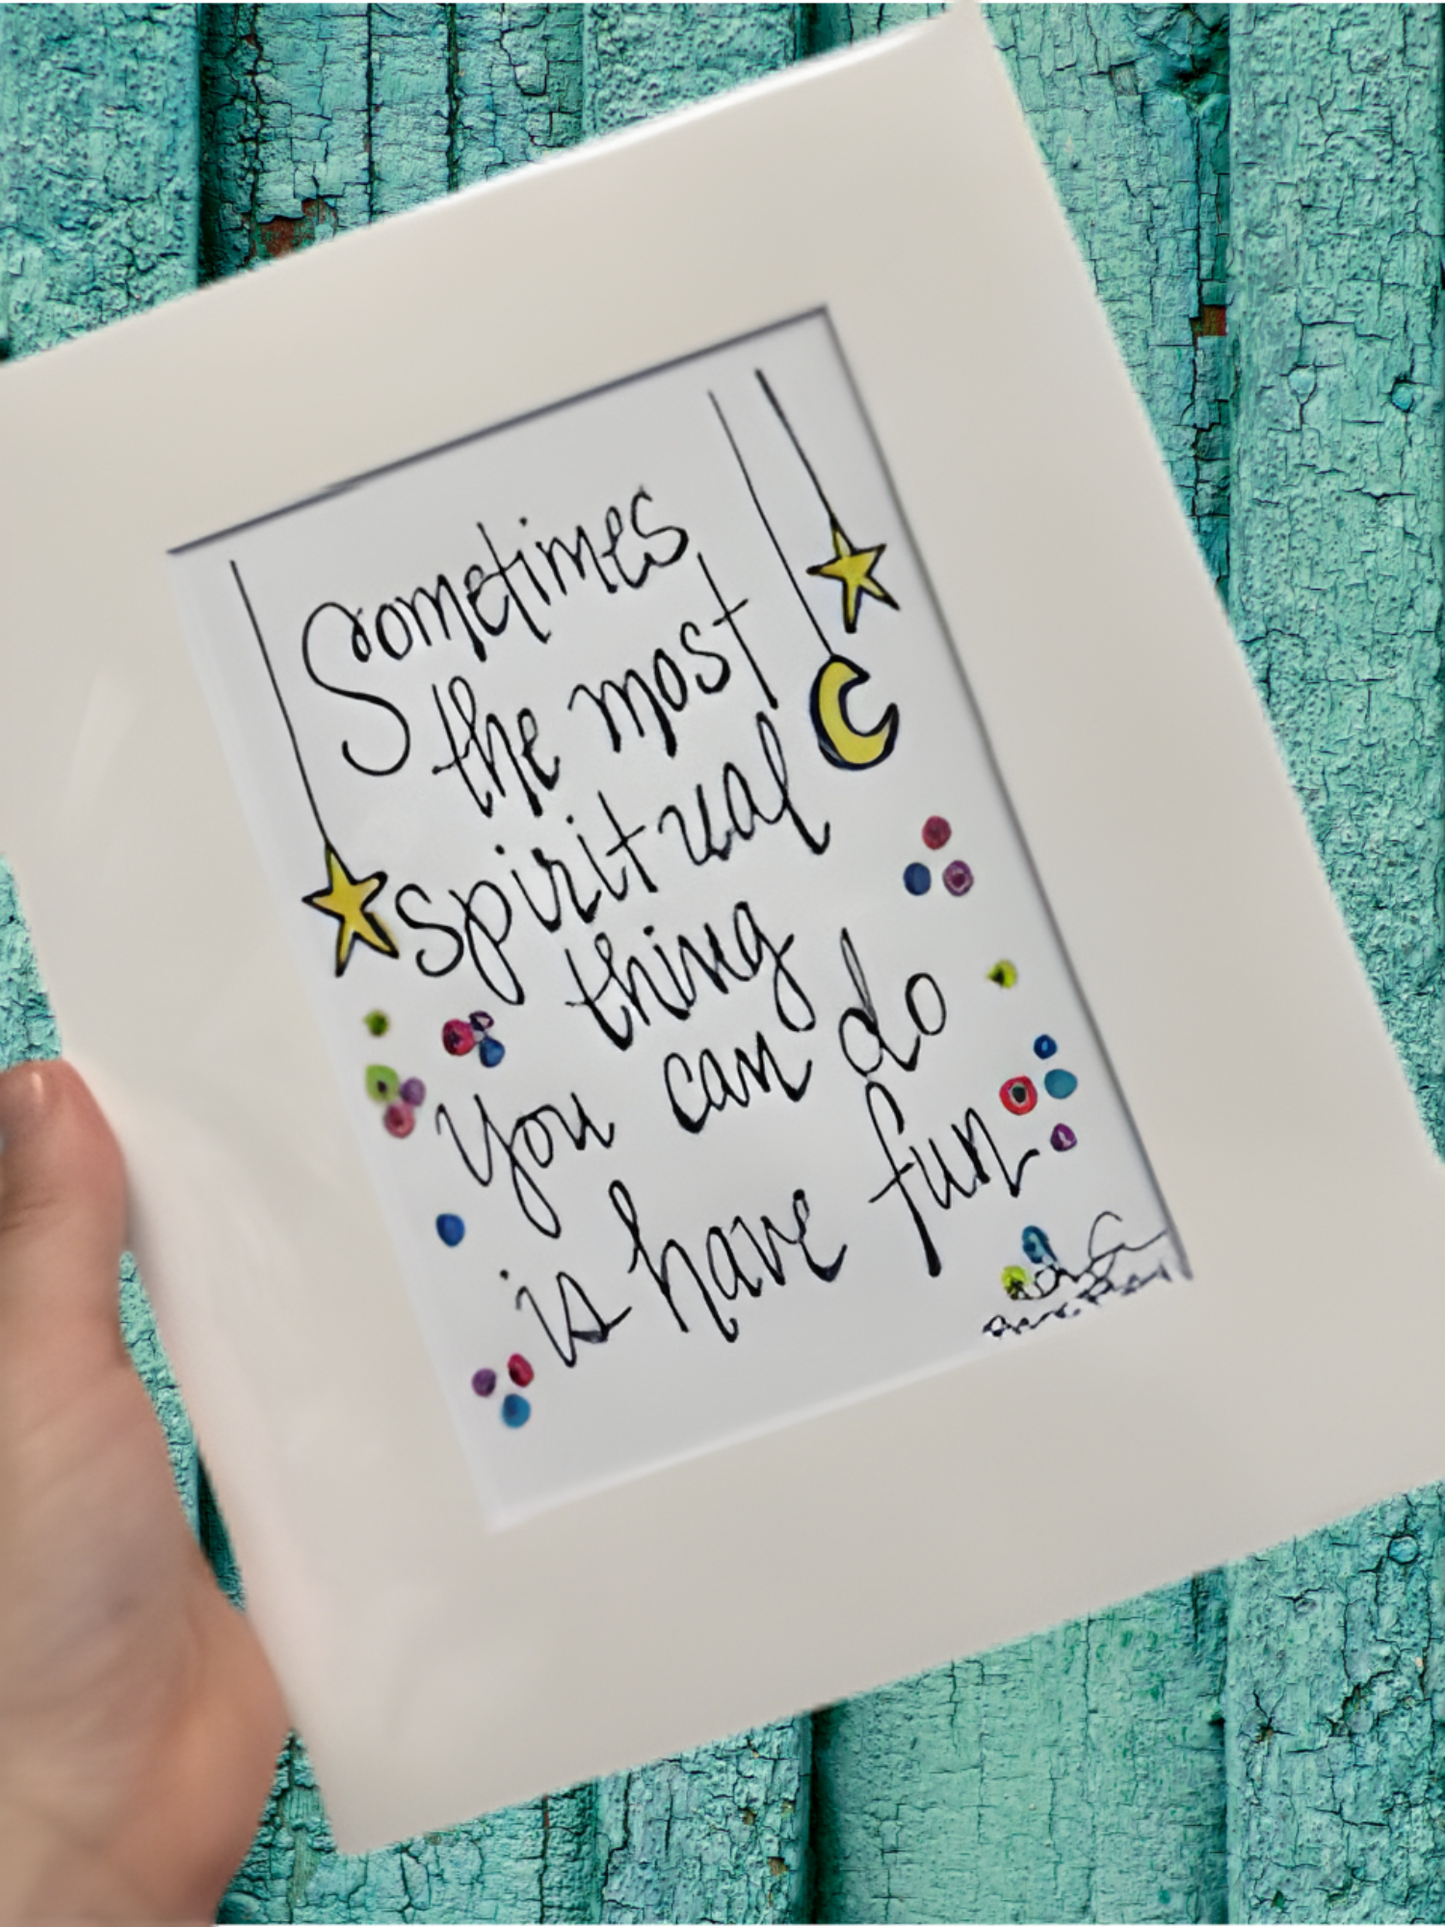 Sometimes
the most
spiritual
thing
you can do
is have fun